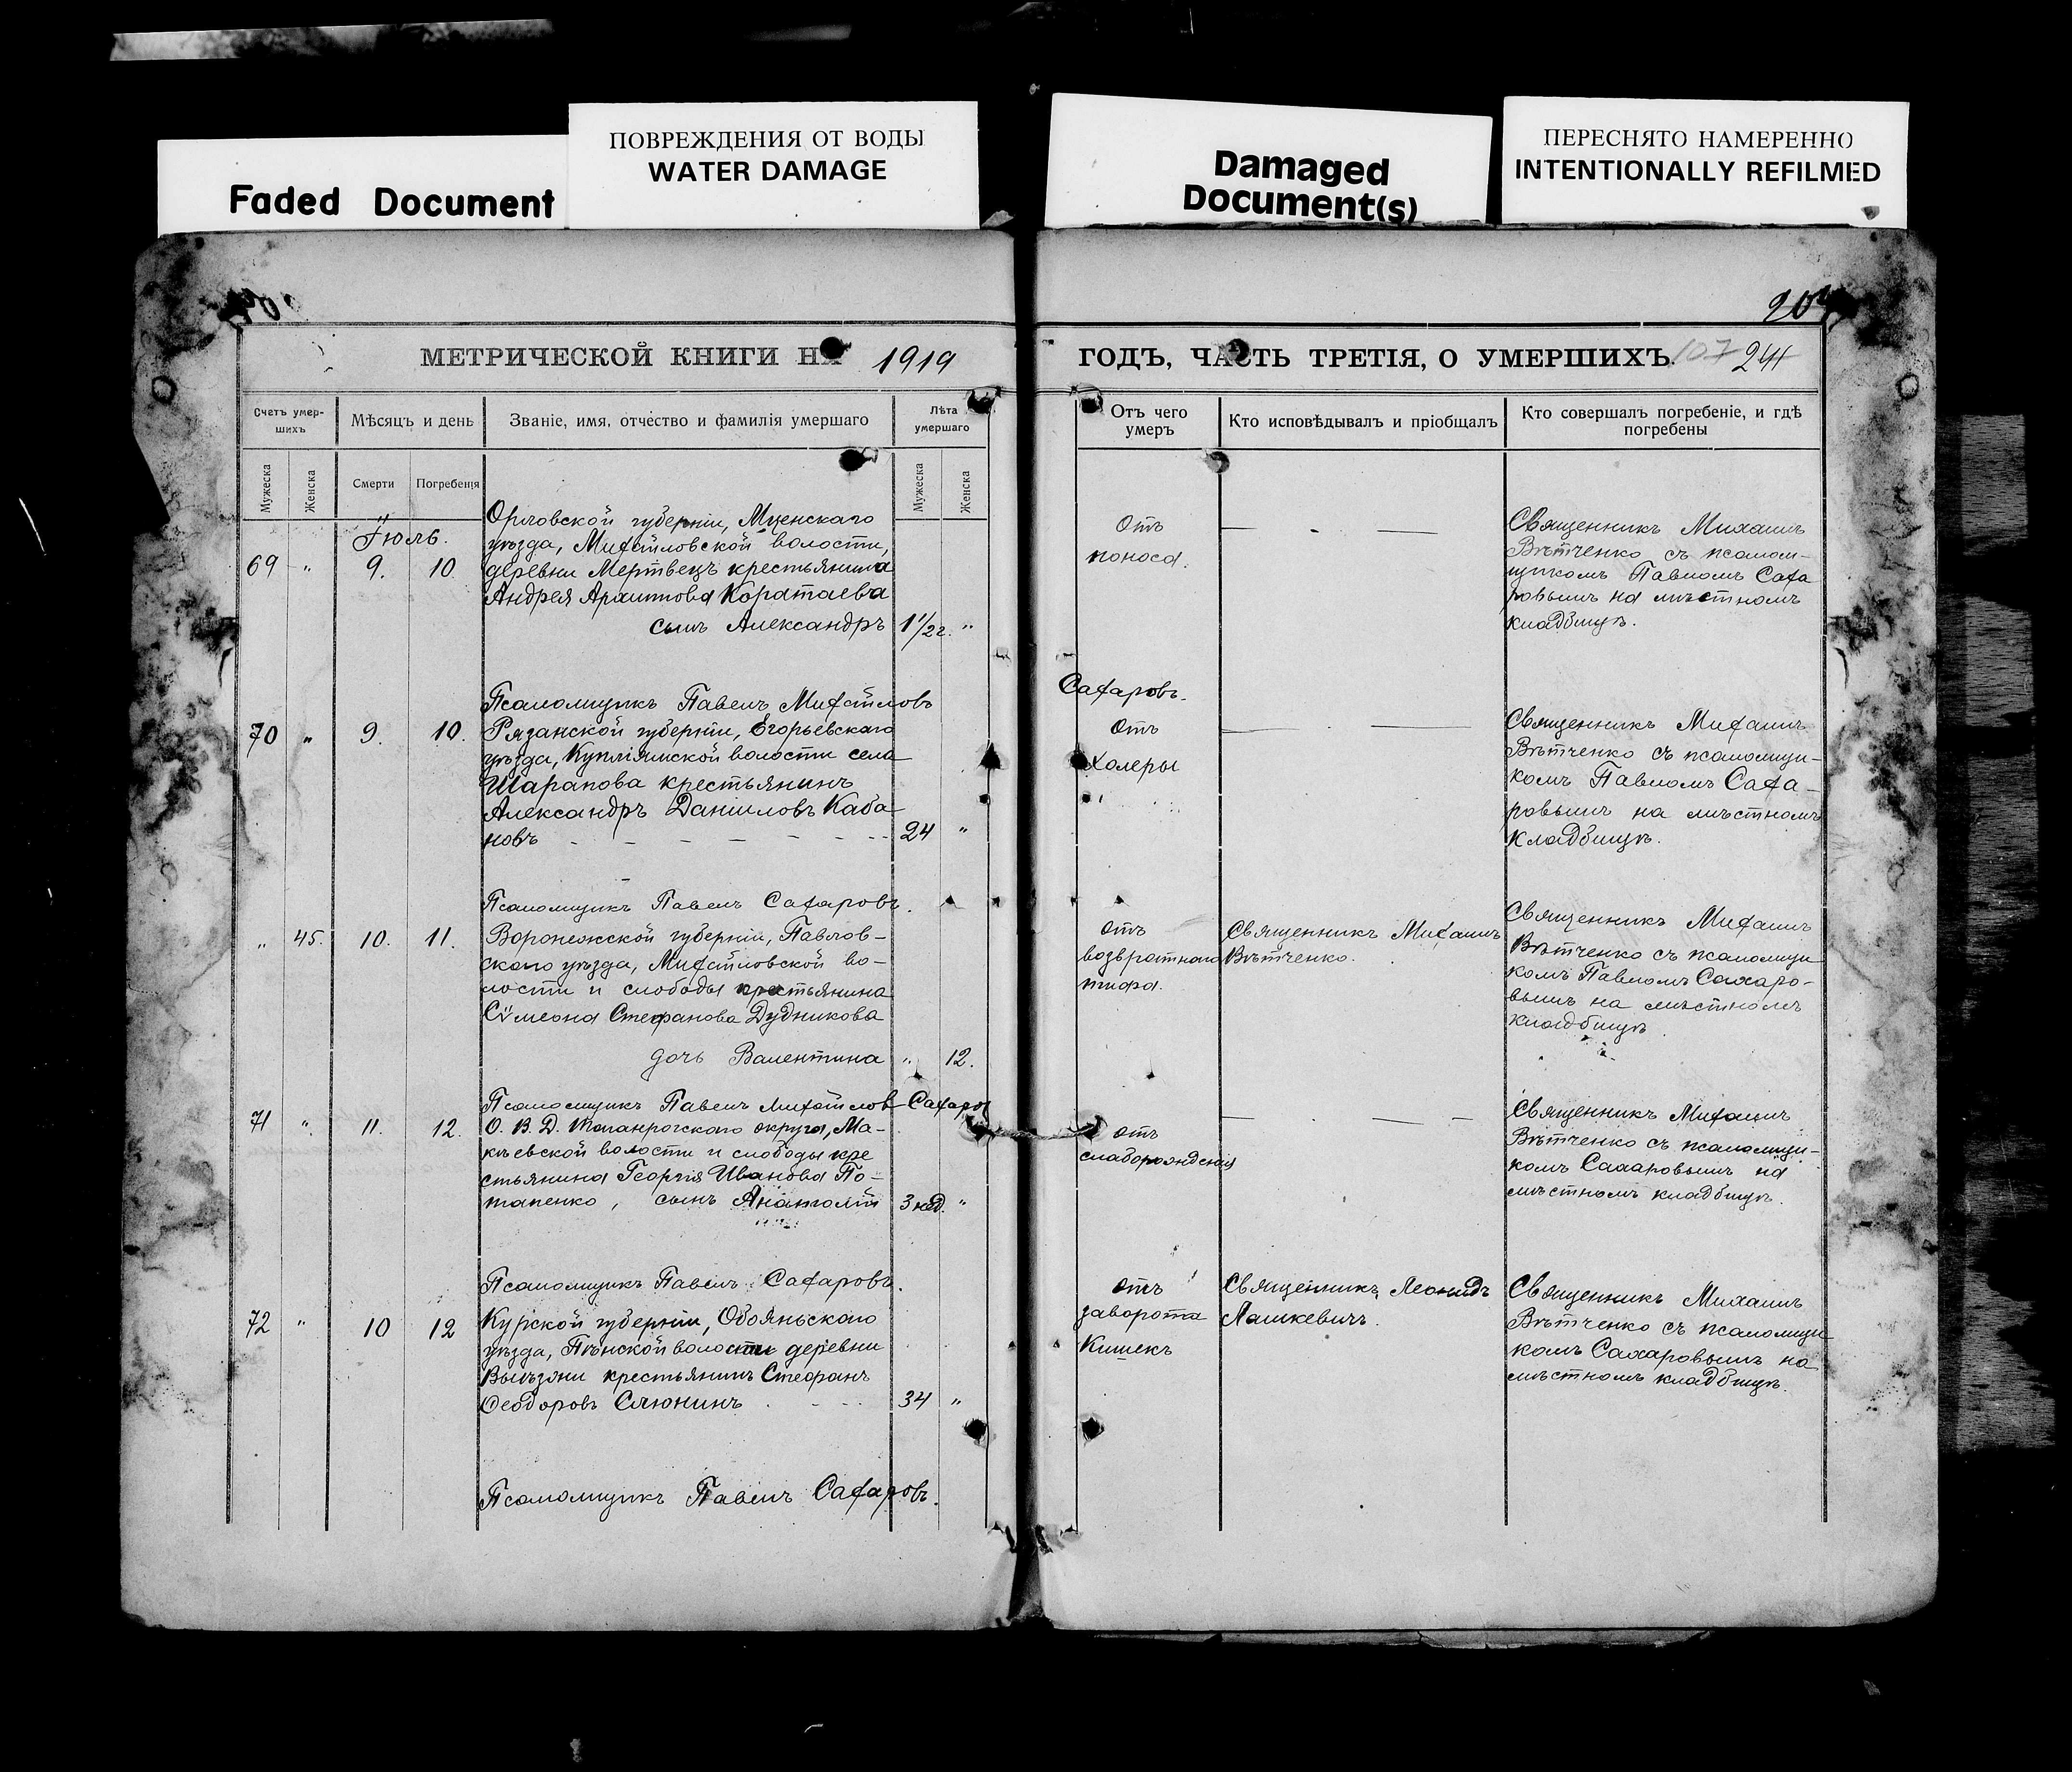 ПОВРЕЖДЕНИЯ ОТ ВОДЫ
WATER DAMAGE
Faded Document
Damaged
Document(s)
ПЕРЕСНЯТО НАМЕРЕННО
INTENTIONALLY REFILMED
МЕТРИЧЕСКОЙ КНИГИ НА 1919
ГОДЪ, ЧАСТЬ ТРЕТІЯ, О УМЕРШИХЪ. 107 241
Счетъ умер-
шихъ
Мѣсяцъ и день
Званіе, имя, отчество и фамилія умершаго
Лѣта
умершаго
Отъ чего
умеръ
Кто исповѣдывалъ и пріобщалъ
Кто совершалъ погребеніе, и гдѣ
погребены
Мужеска
Женска
Смерти
Погребенія
Мужеска
Женска
Іюль.
69 " 9. 10.
Орловской губерніи, Мценскаго
уѣзда, Михайловской волости,
деревни Мертвецъ крестьянина
Андрея Коратаева
сынъ Александръ 1 1/2 г. "
Отъ
поноса.
Священникъ Михаилъ
Вѣтченко съ псалом-
щикомъ Павломъ Саха
ровымъ на мѣстномъ
кладбищѣ.
Псаломщикъ Павелъ Михайловъ Сахаровъ.
70 " 9. 10.
Рязанской губерніи, Егорьевскаго
уѣзда, волости села
Шарапова крестьянинъ
Александръ Даніиловъ Каба
новъ 24 "
Отъ
Холеры
Священникъ Михаилъ
Вѣтченко съ псаломщи-
комъ Павломъ Саха-
ровымъ на мѣстномъ
кладбищѣ.
Псаломщикъ Павелъ Сахаровъ.
" 45. 10. 11.
Воронежской губерніи, Павлов-
скаго уѣзда, Михайловской во-
лости и слободы крестьянина
Сѵмеона Стефанова Дудникова
дочь Валентина " 12.
отъ
возвратнаго
тифа.
Священникъ Михаилъ
Вѣтченко.
Священникъ Михаилъ
Вѣтченко съ псаломщи
комъ Павломъ Сахаро-
вымъ на мѣстномъ
кладбищѣ.
Псаломщикъ Павелъ Михайлов Сахаров
71 " 11. 12.
О. В. Д. Таганрогскаго округа, Ма-
кѣевской волости и слободы кре
стьянина Георгія Иванова По-
тапенко, сынъ Анатолій 3 нед. "
отъ
слаборожденія
Священникъ Михаилъ
Вѣтченко съ псаломщи-
комъ Сахаровымъ на
мѣстномъ кладбищѣ.
Псаломщикъ Павелъ Сахаровъ.
72 " 10 12
Курской губерніи, Обояньскаго
уѣзда, Пѣнской волости деревни
крестьянинъ Стефанъ
Феодоровъ Слюнинъ 34 "
отъ
заворота
Кишекъ
Священникъ Леонидъ
Лашкевичъ.
Священникъ Михаилъ
Вѣтченко съ псаломщи
комъ Сахаровымъ на
мѣстномъ кладбищѣ.
Псаломщикъ Павелъ Сахаровъ.